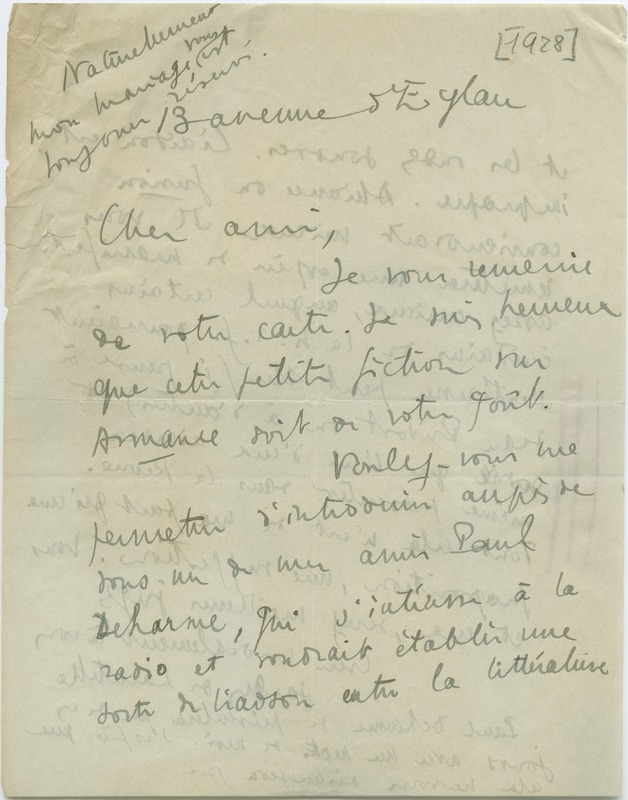 [1928]
Naturellement
mon mariage vous est
toujours réservé.
13 avenue d'Eylau
Cher ami,
Je vous remercie
de votre carte. Je suis heureux
que cette petite fiction sur
Armance soit de votre goût.
Voulez-vous me
permettre d'introduire auprès de
vous un de mes amis Paul
Deharme, qui s'intéresse à la
radio et voudrait établir une
sorte de liaison entre la littérature